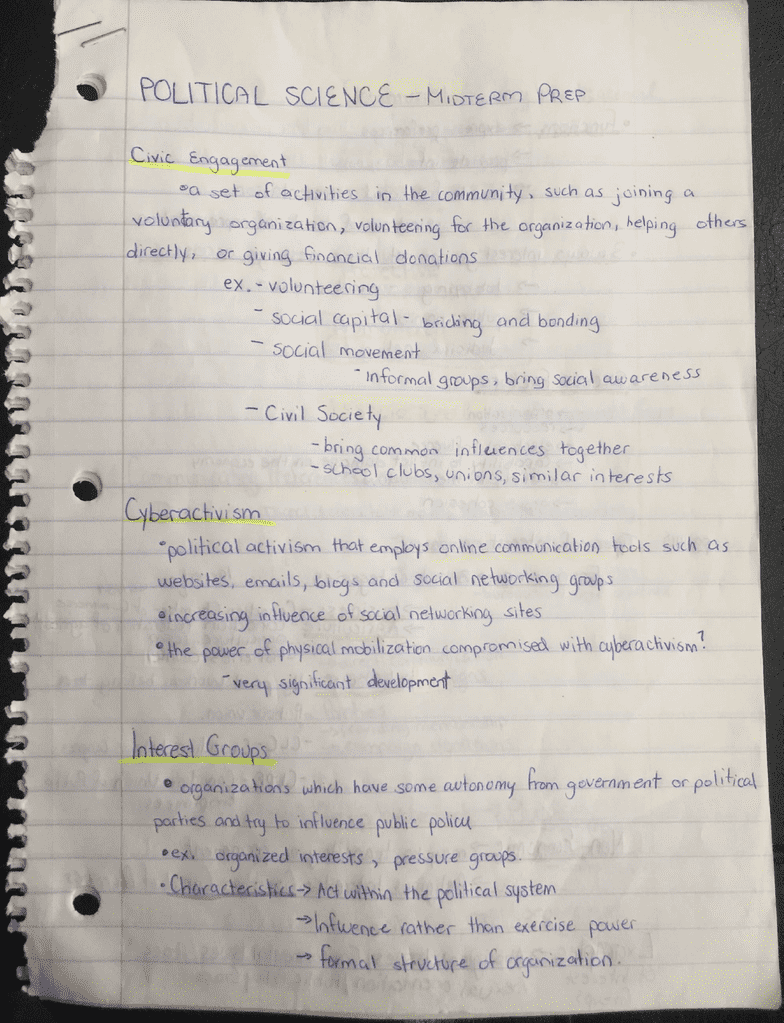 POLITICAL SCIENCE - MIDTERM PREP
Civic Engagement
•a set of activities in the community, such as joining a
voluntary organization, volunteering for the organization, helping others
directly, or giving financial donations
ex. - volunteering
- social capital - briding and bonding
- social movement
- informal groups, bring social awareness
- Civil Society
- bring common influences together
- school clubs, unions, similar interests
Cyberactivism
•political activism that employs online communication tools such as
websites, emails, blogs and social networking groups
•increasing influence of social networking sites
•the power of physical mobilization compromised with cyberactivism?
- very significant development
Interest Groups
• organizations which have some autonomy from government or political
parties and try to influence public policy
•ex. organized interests, pressure groups.
• Characteristics → Act within the political system
→ Influence rather than exercise power
→ formal structure of organization.